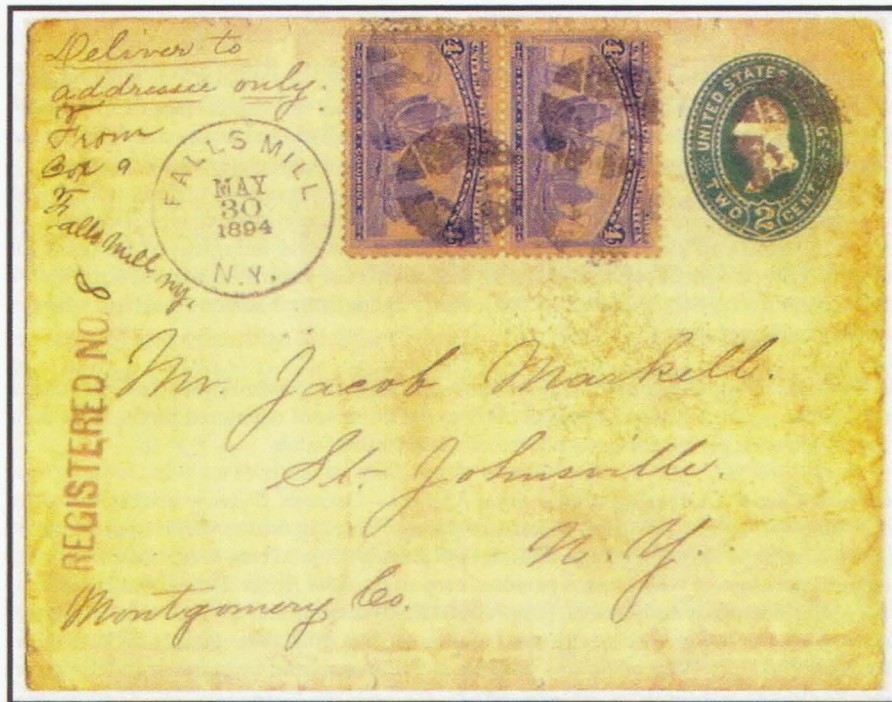 Deliver to
addressee only.
From
Box 9
Falls Mill NY.
FALLS MILL
MAY
30
1894
N.Y.
UNITED STATES
TWO 2 CENTS
REGISTERED NO. 8
Mr. Jacob Markell.
St. Johnsville.
N. Y.
Montgomery Co.